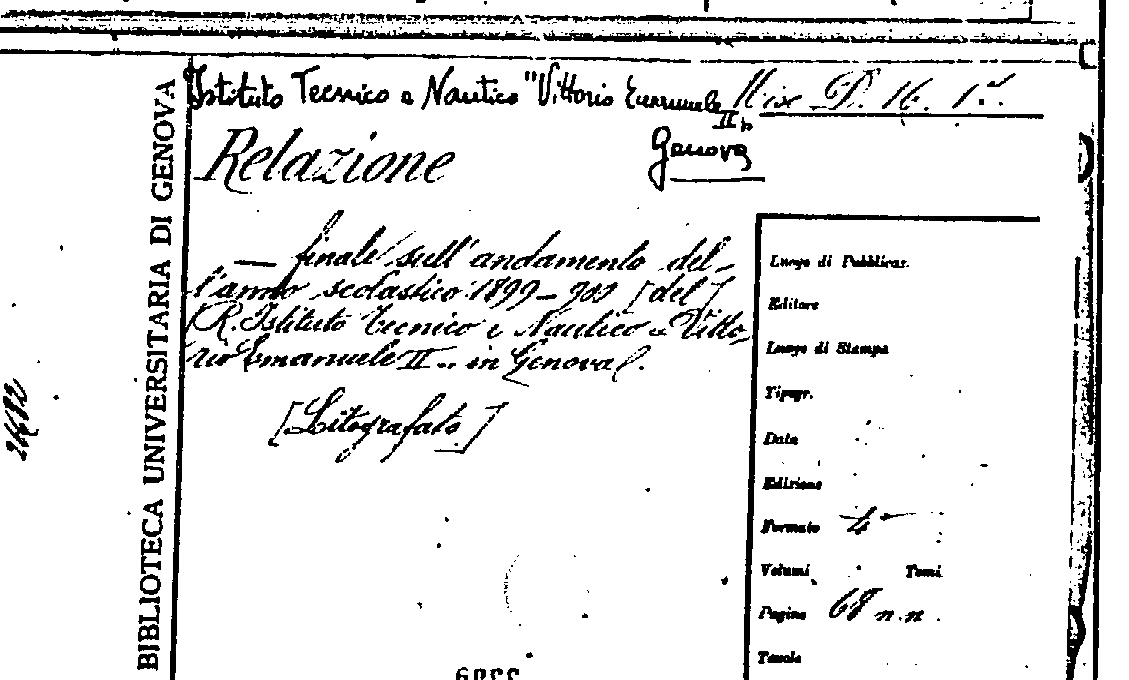 BIBLIOTECA UNIVERSITARIA DI GENOVA
Istituto Tecnico e Nautico "Vittorio Emanuele II"
Misc D. 16. 1
Genova
Relazione
— finale sull'andamento del-
l'anno scolastico 1899-900 [del]
R. Istituto Tecnico e Nautico "Vitto-
rio Emanuele II" in Genova].
[Litografato.]
Luogo di Pubblicaz.
Editore
Luogo di Stampa
Tipogr.
Data
Edizione
Formato 4°
Volumi Tomi
Pagine 68 n.n.
Tavole